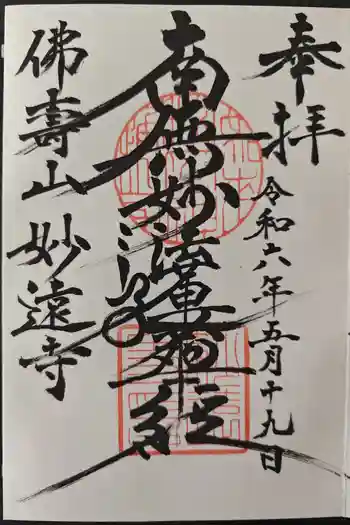 奉拝
令和六年五月十九日
南無妙法蓮華経
佛壽山妙遠寺